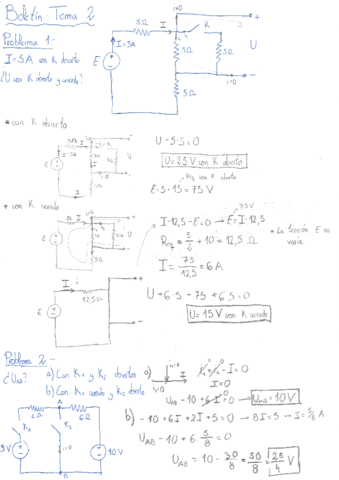 Boletín: Tema 2
Problema 1-
I=5A con K abierto
¿U con K abierto y cerrado?
5Ω
I
i=0
K
+
I=5A
E
5Ω
5Ω
U
-
i=0
5Ω
* con K abierto
5Ω
E
U
U-5·5=0
U=25V con K abierto
con K abierto
E=5·15=75V
* con K cerrado
E
U
75V
I·12,5-E=0 → E=I·12,5
Req=5/2+10=12,5Ω
* La tensión E no varía.
I=75/12,5=6A
12,5Ω
E
U+6·5-75+6·5=0
U=15V con K cerrado
Problema 2-
¿UAB?
a) Con K1 y K2 abiertos
b) Con K1 cerrado y K2 abierto
a)
i=0
I
-I=0
I=0
UAB-10+6I=0 → UAB=10V
A
2Ω
6Ω
K1
K2
i=0
10V
B
b) -10+6I+2I+5=0 → 8I=5 → I=5/8 A
UAB-10+6·5/8=0
UAB=10-30/8=50/8=25/4 V